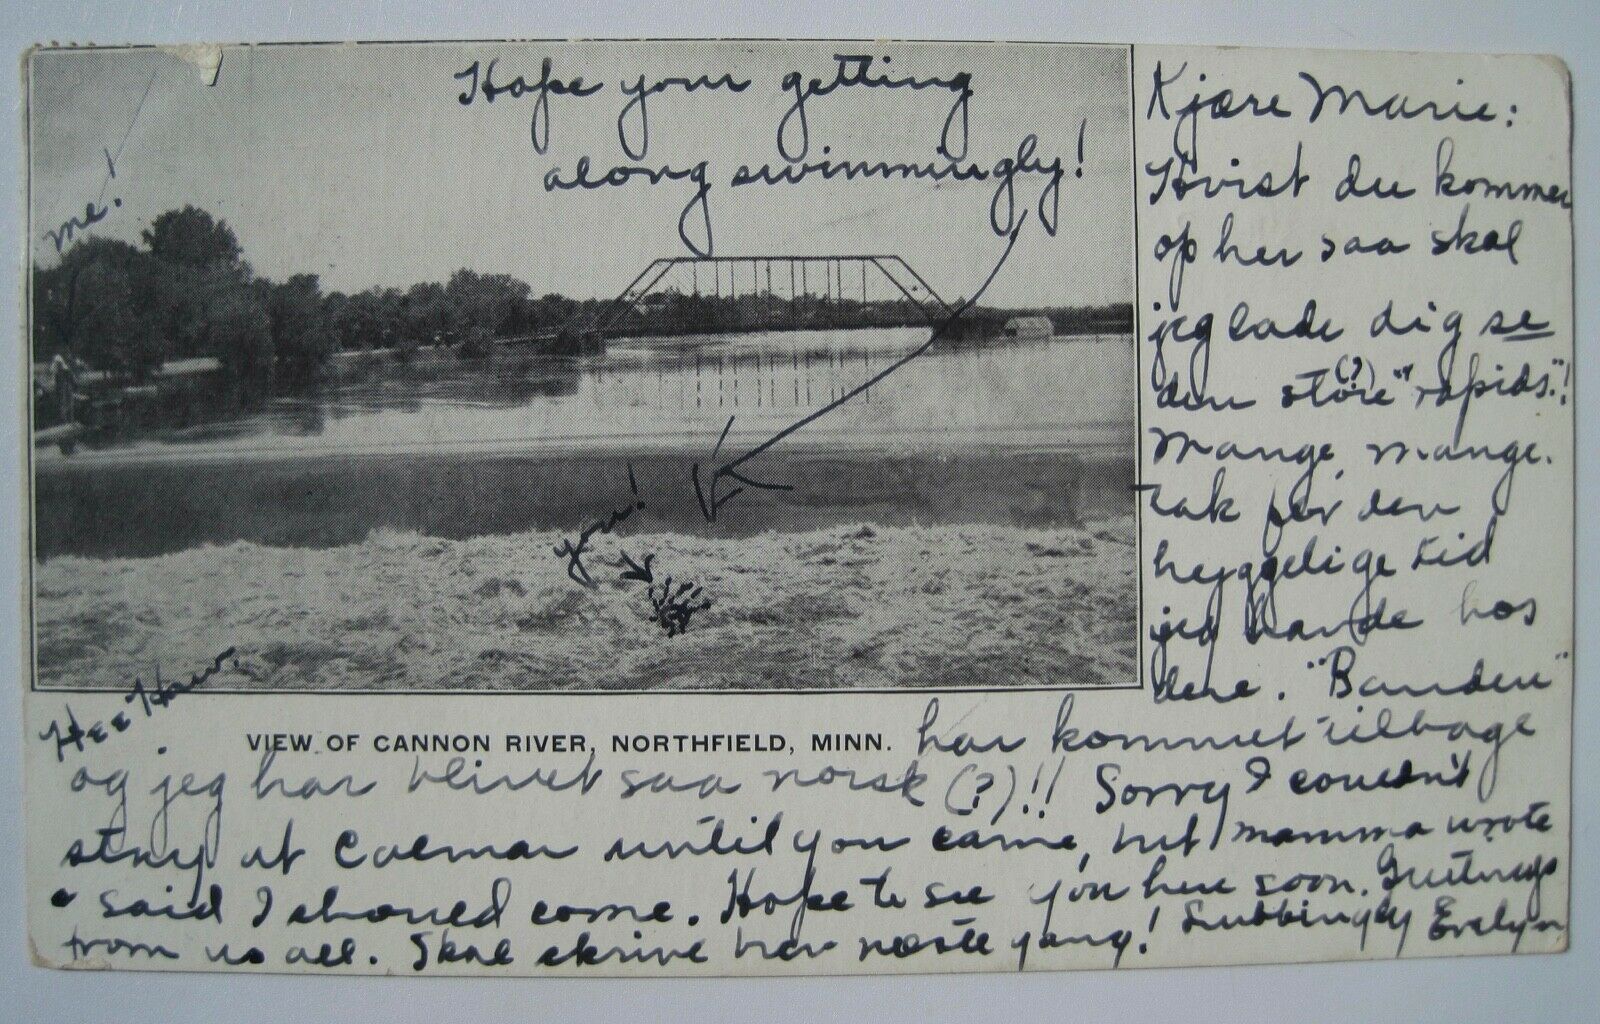 Hope your getting
along swimmingly!
me!
you!
Hee Haw.
VIEW OF CANNON RIVER, NORTHFIELD, MINN.
Kjære Marie:
Hvist du kommer
op her saa skal
jeg lade dig se
den störe (?) "rapids."!
Mange, mange.
tak för den
hyggelige tid
jeg havde hos
dere. "Banden"
har kommet tilbage
og jeg har blivet saa norsk (?)!! Sorry I couldn't
stay at Calmar until you came, but mamma wrote
& said I should come. Hope to see you here soon. Greetings
from us all. Skal skrive mer næste gang! Lubbingly Evelyn